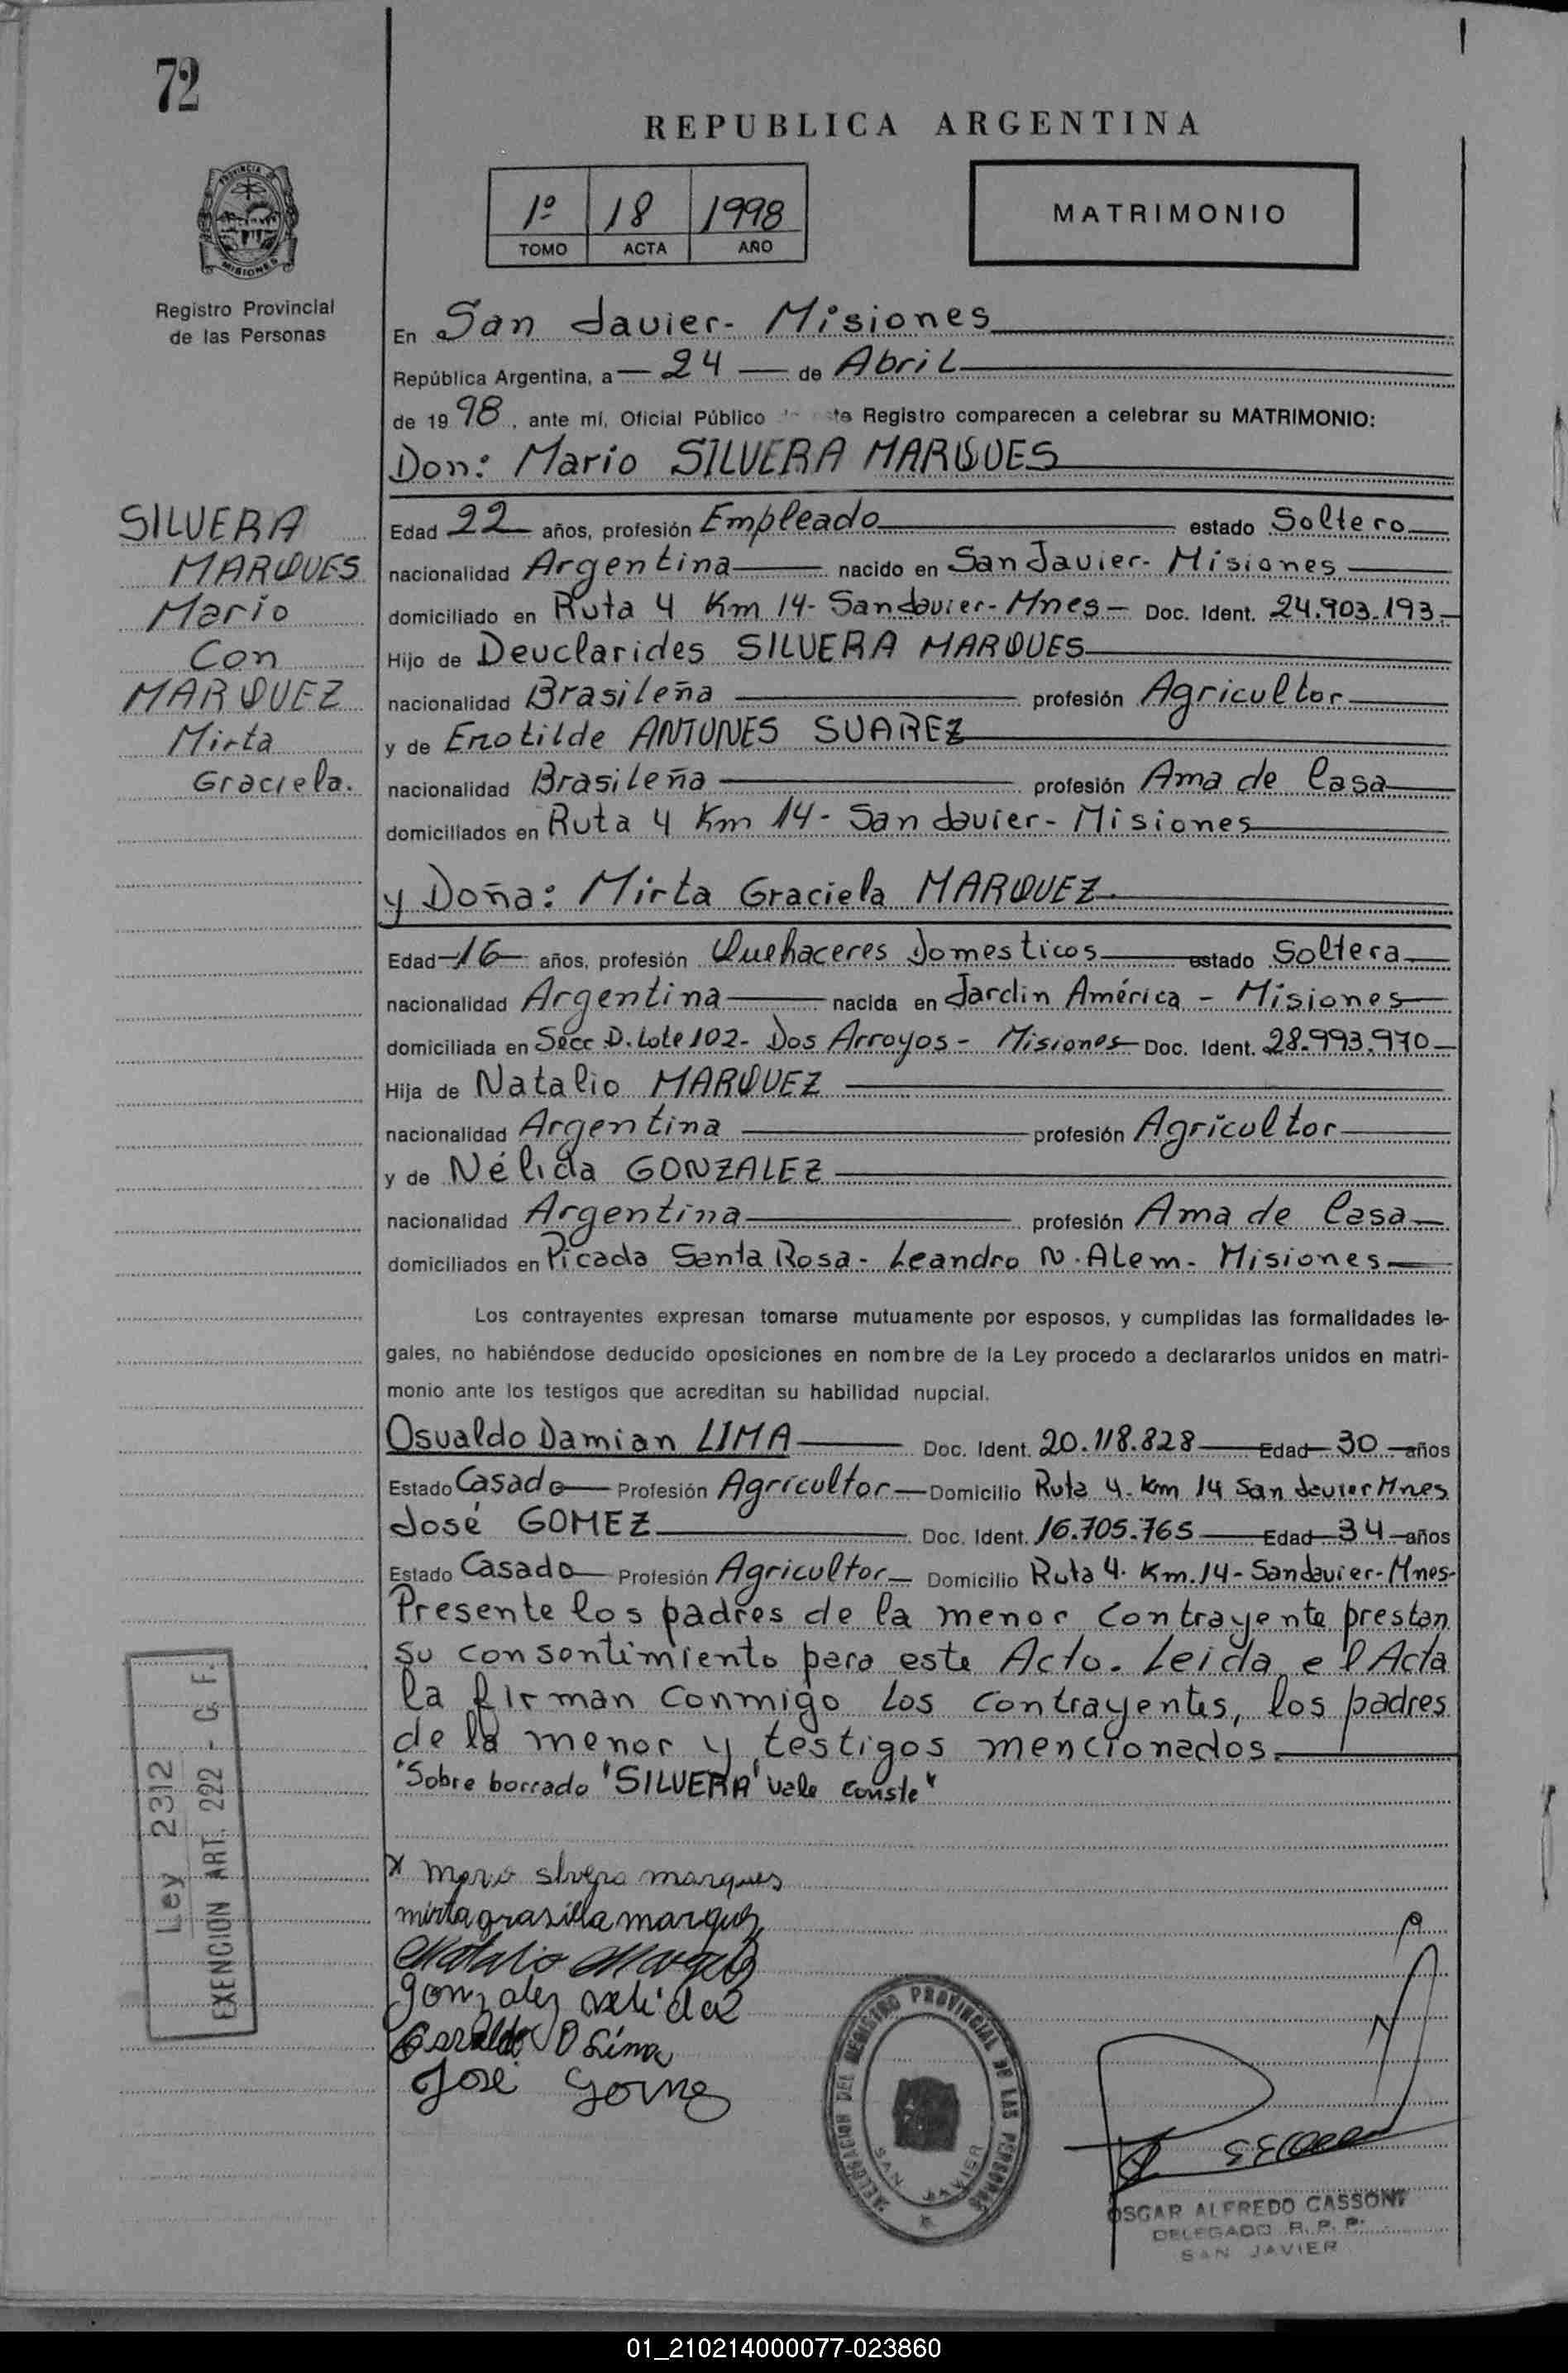 72
REPUBLICA ARGENTINA
1º 18 1998
TOMO ACTA AÑO
MATRIMONIO
PROVINCIA DE
MISIONES
Registro Provincial
de las Personas
En San Javier- Misiones
República Argentina, a 24 de Abril
de 1998, ante mí, Oficial Público Registro comparecen a celebrar su MATRIMONIO:
Don: Mario SILVERA MARQUES
SILVERA
MARQUES
Mario
Con
MARQUEZ
Mirta
Graciela.
Edad 22 años, profesión Empleado estado Soltero
nacionalidad Argentina nacido en San Javier- Misiones
domiciliado en Ruta 4 Km 14- San Javier- Mnes- Doc. Ident. 24.903.193-
Hijo de Deuclarides SILVERA MARQUES
nacionalidad Brasileña profesión Agricultor
y de Erotilde ANTUNES SUAREZ
nacionalidad Brasileña profesión Ama de Casa
domiciliados en Ruta 4 Km 14- San Javier- Misiones
y Doña: Mirta Graciela MARQUEZ
Edad 16 años, profesión Quehaceres Domesticos estado Soltera
nacionalidad Argentina nacida en Jardin América - Misiones
domiciliada en Secc D. Lote 102- Dos Arroyos - Misiones Doc. Ident. 28.993.970-
Hija de Natalio MARQUEZ
nacionalidad Argentina profesión Agricultor
y de Nélida GONZALEZ
nacionalidad Argentina profesión Ama de Casa
domiciliados en Picada Santa Rosa- Leandro N. Alem- Misiones
Los contrayentes expresan tomarse mutuamente por esposos, y cumplidas las formalidades le-
gales, no habiéndose deducido oposiciones en nombre de la Ley procedo a declararlos unidos en matri-
monio ante los testigos que acreditan su habilidad nupcial.
Osvaldo Damian LIMA Doc. Ident. 20.118.828 Edad 30 años
Estado Casado Profesión Agricultor Domicilio Ruta 4. Km 14 San Javier Mnes
José GOMEZ Doc. Ident. 16.705.765 Edad 34 años
Estado Casado Profesión Agricultor Domicilio Ruta 4. Km. 14- San Javier- Mnes-
Presente los padres de la menor contrayente prestan
su consentimiento para este Acto. Leida el Acta
la firman conmigo los contrayentes, los padres
de la menor y testigos mencionados.
"Sobre borrado 'SILVERA' vale conste"
Ley 2312
EXENCION ART. 222 - C. F.
x mario silvera marques
mirta grasiela marquez
Natalio Marquez
gonzalez nelida
Osvaldo D Lima
José Gomez
DELEGACION DEL REGISTRO PROVINCIAL DE LAS PERSONAS
SAN JAVIER
OSCAR ALFREDO CASSONI
DELEGADO R. P. P.
SAN JAVIER
01_210214000077-023860